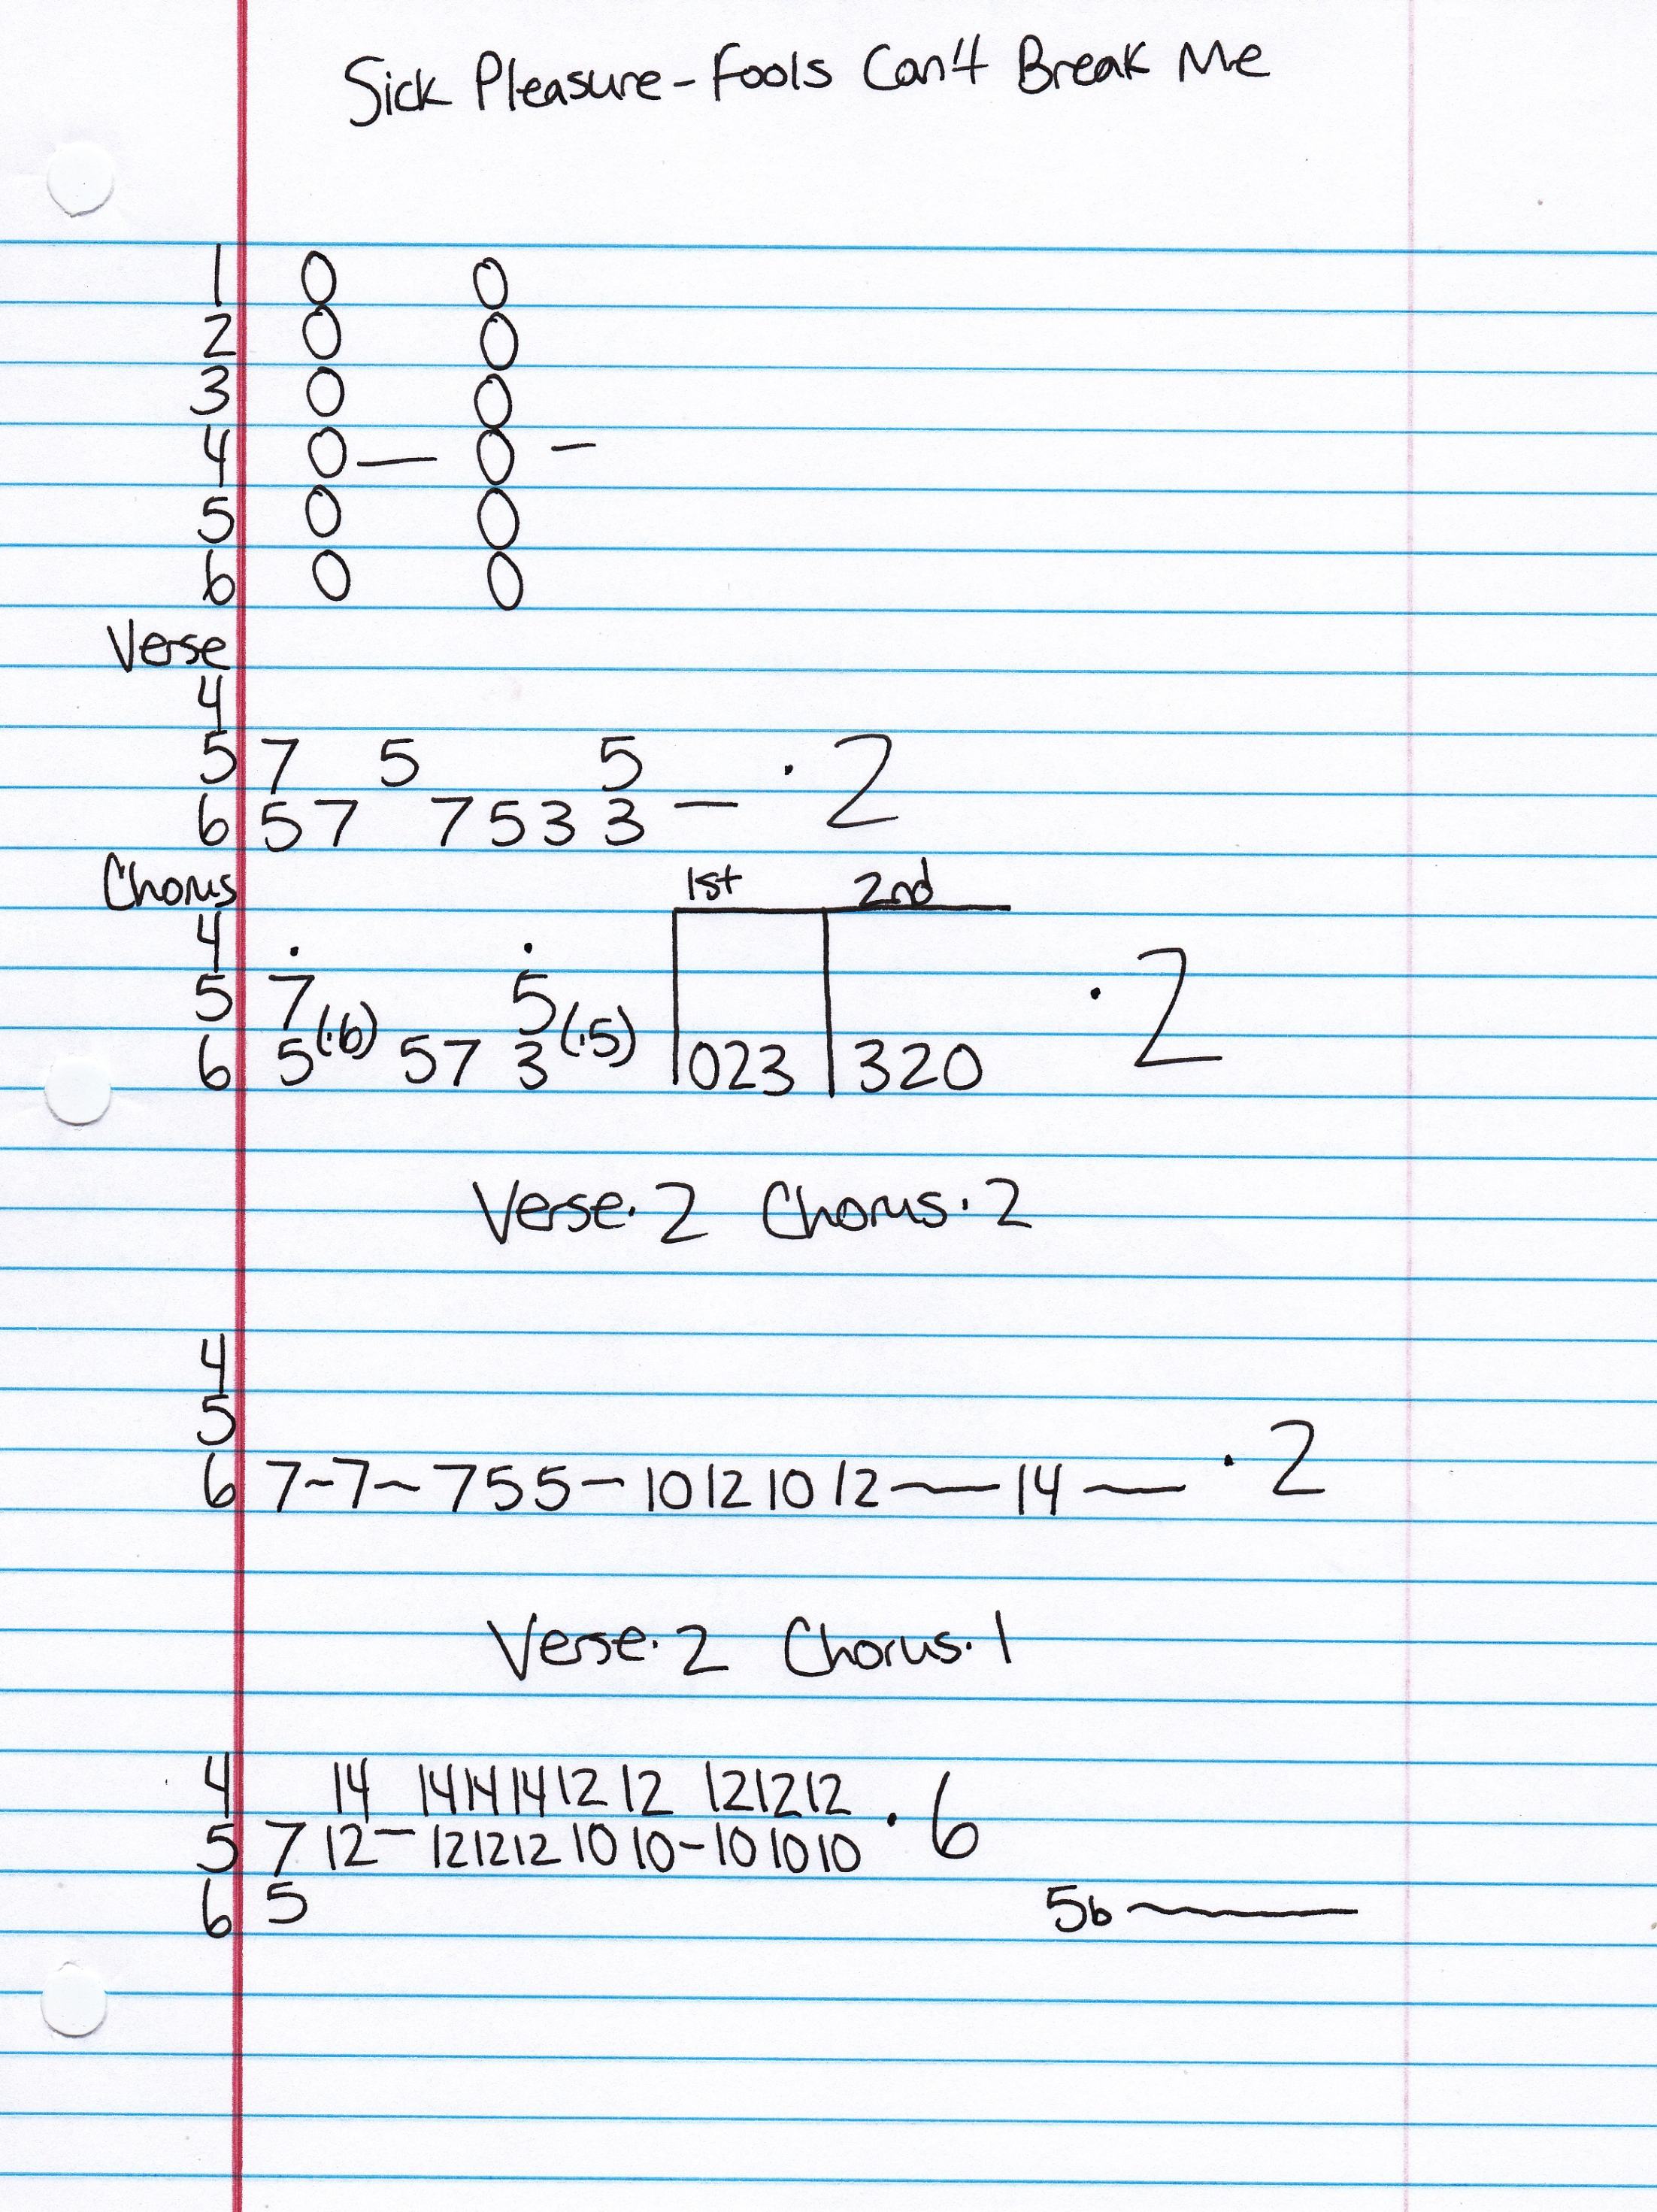 Sick Pleasure - Fools Can't Break Me
1 0 0
2 0 0
3 0 0
4 0 — 0 –
5 0 0
6 0 0
Verse
4
5 7 5 5
6 57 7533 3 — · 2
Chorus 1st 2nd
4 . .
5 7 5
6 5(·6) 57 3(·5) 023 320 · 2
Verse · 2 Chorus · 2
4
5
6 7-7~755-10 12 10 12—14— · 2
Verse · 2 Chorus · 1
4 14 14 14 14 12 12 12 12 12
5 7 12 – 12 12 12 10 10 - 10 10 10 · 6
6 5 5b ———